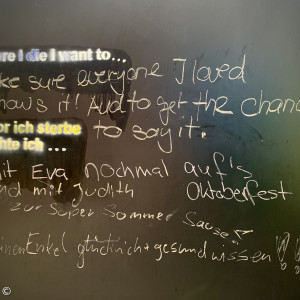 re I die I want to...
ke sure everyone I loved
nows it! And to get the chanc
or ich sterbe
to say it.
hte ich ...
it Eva nochmal auf's
nd mit Judith Oktoberfest
zur Super Sommer Sause!
inen Enkel glücklich + gesund wissen!
©